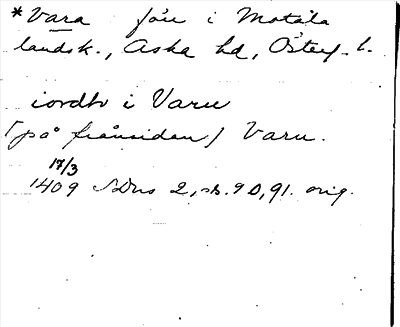 *Vara förr i Motala
landsk., Aska hd, Österg. l.
iordh i Varu
(på frånsidan) Varu.
17/3
1409 SDns 2, s. 90, 91. orig.